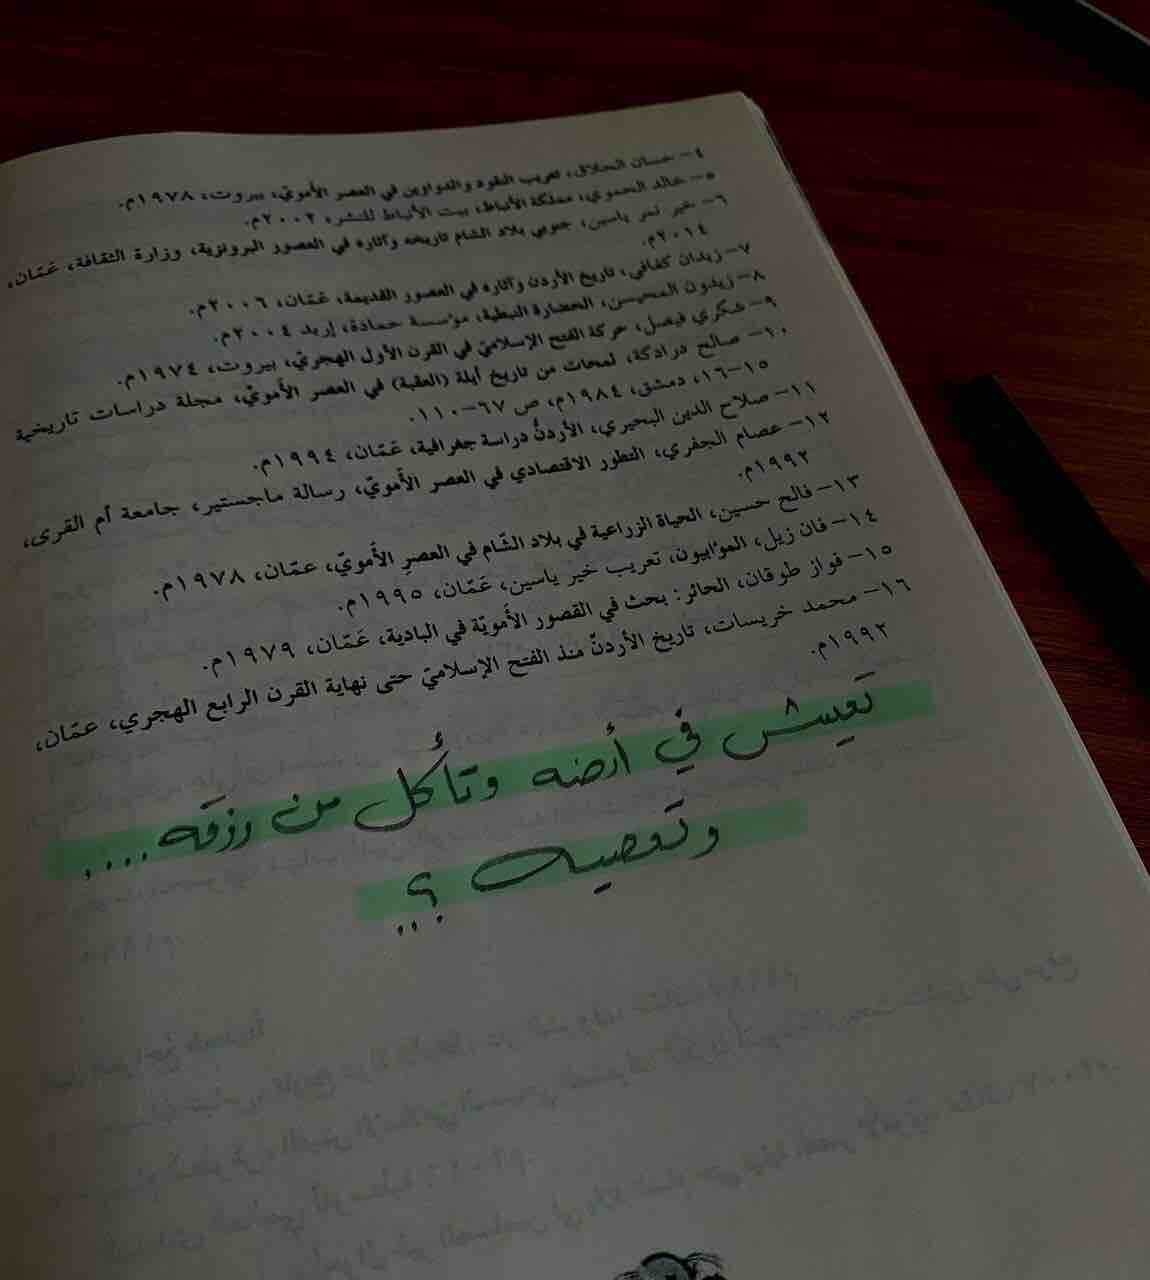 ٤- حسان الحلاق، تعريب النقود والدواوين في العصر الأمويّ، بيروت، ١٩٧٨م.
٥- خالد الحموي، مملكة الأنباط، بيت الأنباط للنشر، ٢٠٠٢م.
٦- خير نمر ياسين، جنوبي بلاد الشام تاريخه وآثاره في العصور البرونزية، وزارة الثقافة، عَمّان،
٢٠١٤م.
٧- زيدان كفافي، تاريخ الأردن وآثاره في العصور القديمة، عَمّان، ٢٠٠٦م.
٨- زيدون المحيسن، الحضارة النبطية، مؤسسة حمادة، إربد ٢٠٠٤م.
٩- شكري فيصل، حركة الفتح الإسلاميّ في القرن الأول الهجريّ، بيروت، ١٩٧٤م.
١٠- صالح درادكة، لمحات من تاريخ أيلة (العقبة) في العصر الأمويّ، مجلة دراسات تاريخية
١٥-١٦، دمشق، ١٩٨٤م، ص ٦٧-١١٠.
١١- صلاح الدين البحيري، الأردنُّ دراسة جغرافية، عَمّان، ١٩٩٤م.
١٢- عصام الجفري، التطور الاقتصادي في العصر الأمويّ، رسالة ماجستير، جامعة أم القرى،
١٩٩٢م.
١٣- فالح حسين، الحياة الزراعية في بلاد الشّام في العصرِ الأمويّ، عمّان، ١٩٧٨م.
١٤- فان زيل، الموآبيون، تعريب خير ياسين، عَمّان، ١٩٩٥م.
١٥- فواز طوقان، الحائر: بحث في القصور الأمويّة في البادية، عَمّان، ١٩٧٩م.
١٦- محمد خريسات، تاريخ الأردنّ منذ الفتح الإسلاميّ حتى نهاية القرن الرابع الهجري، عمّان،
١٩٩٢م.
تَعيش في أرضه وتأكُل من رزقه ....
وتَعصيه ؟..